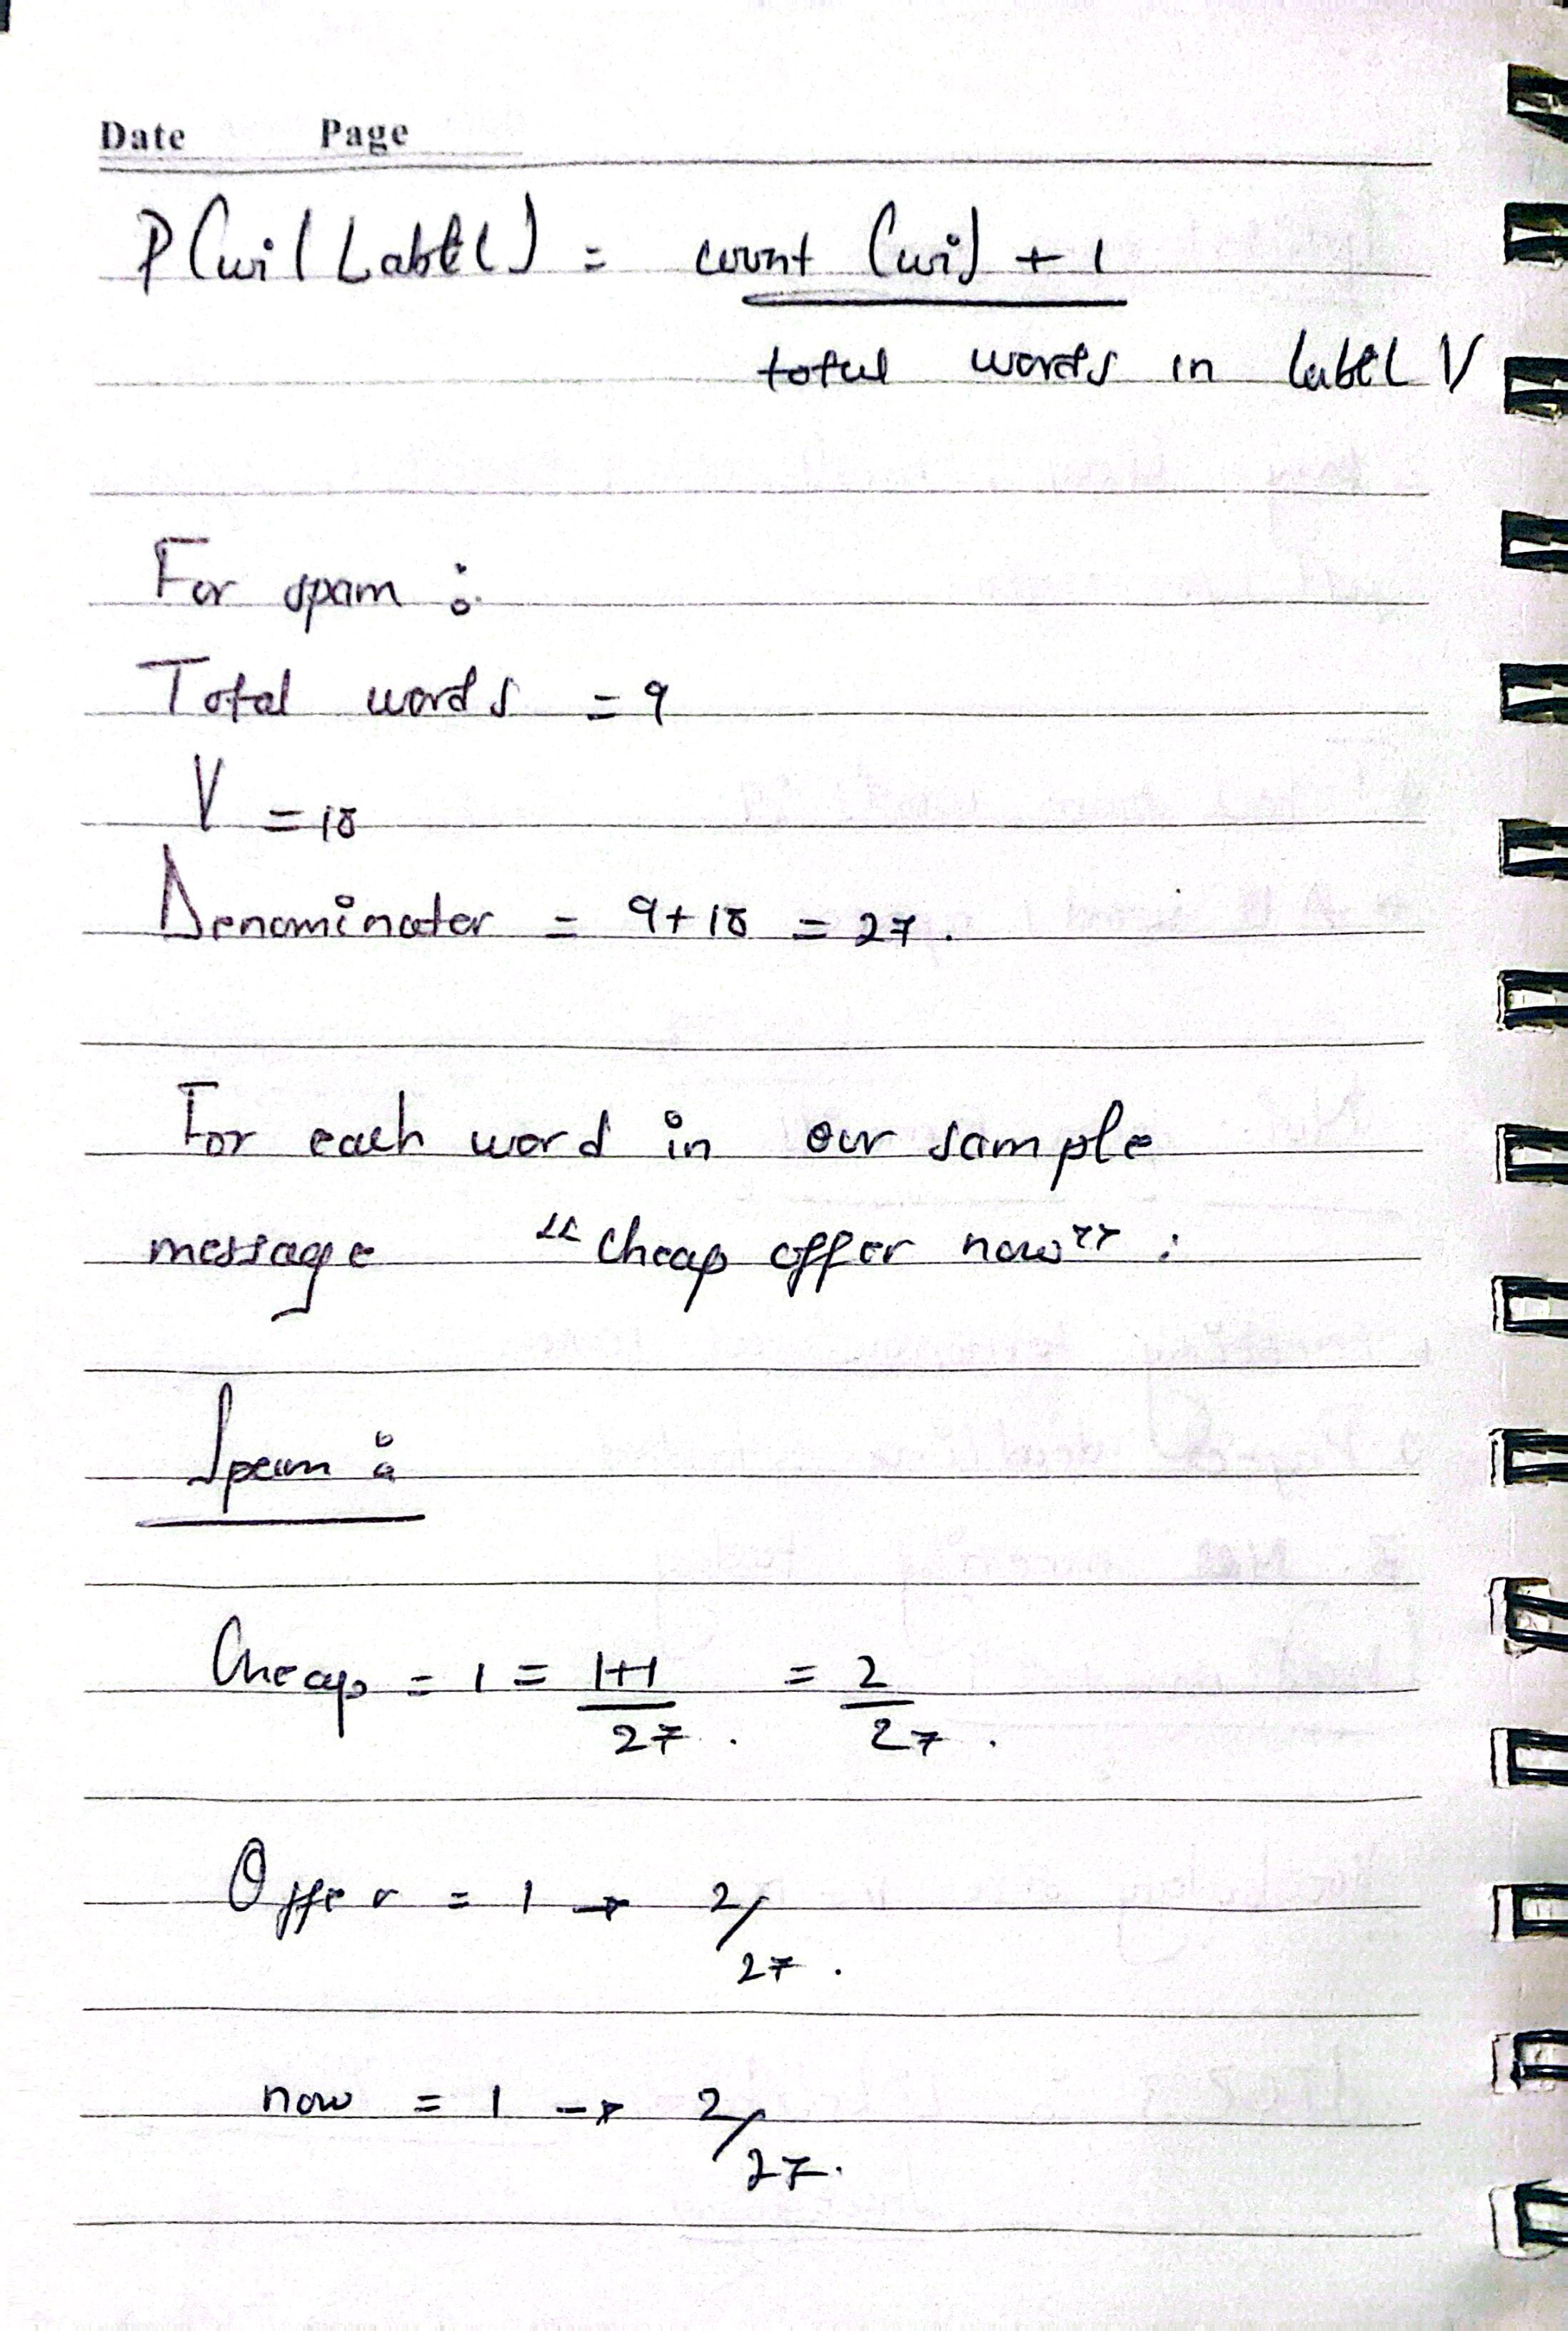 Date Page
P(wi | Label) = count (wi) + 1
total words in label V
For spam :
Total words = 9
V = 18
Denominator = 9+18 = 27.
For each word in our sample
message "Cheap offer now" :
Spam :
Cheap = 1 = 1+1/27. = 2/27.
Offer = 1 → 2/27.
now = 1 → 2/27.